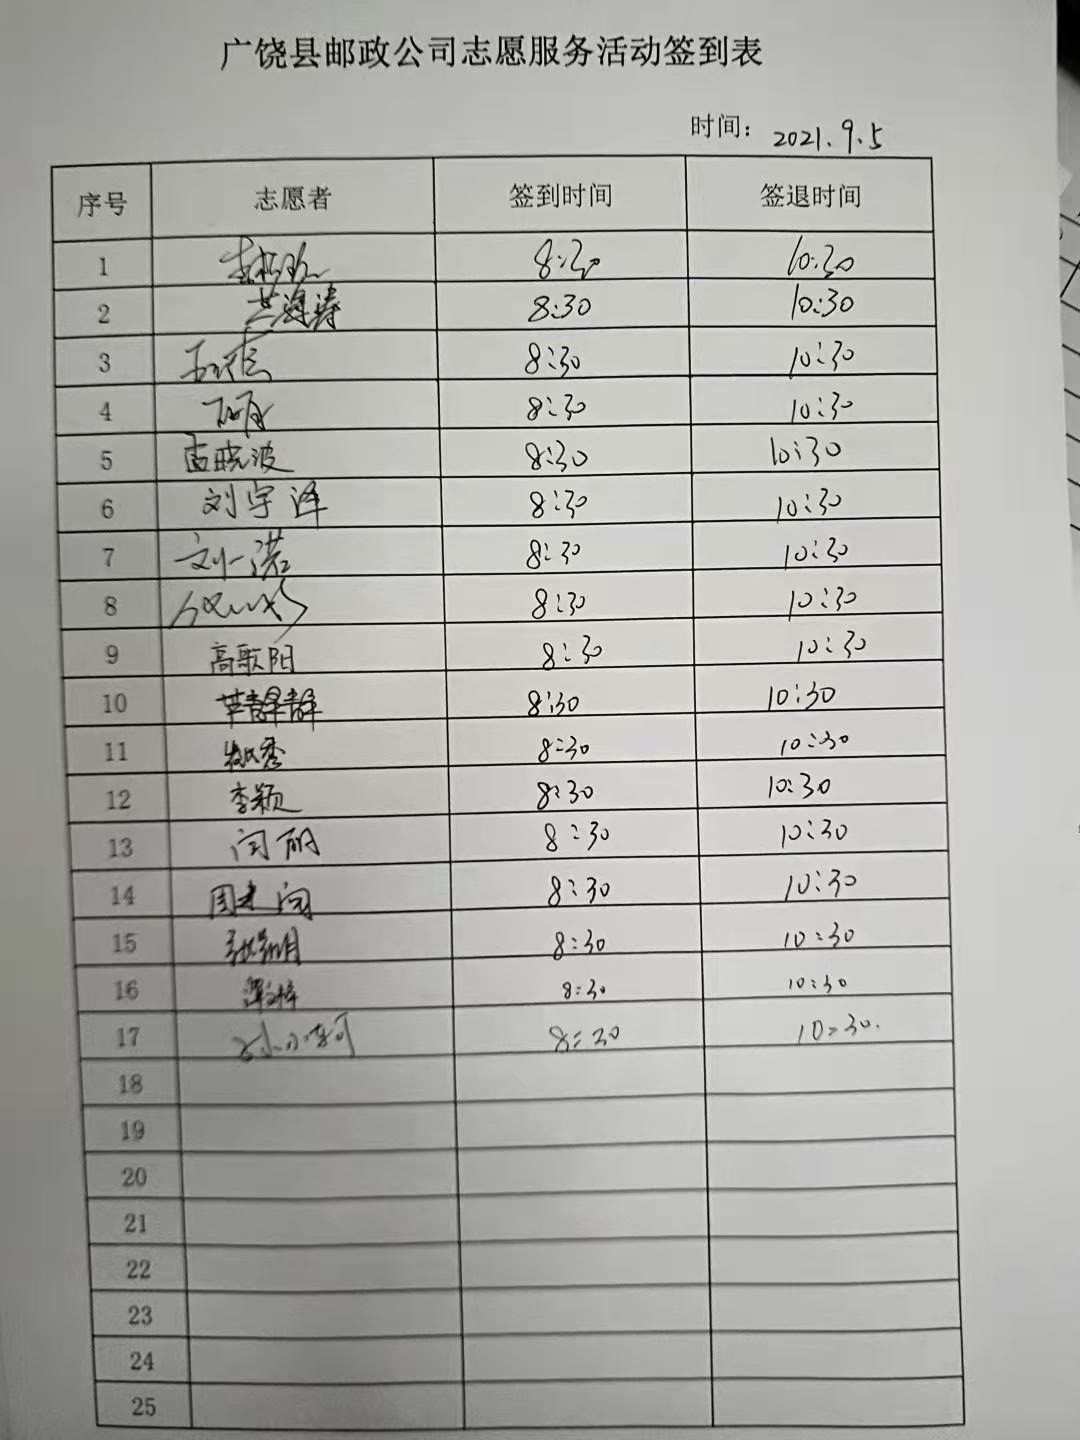 广饶县邮政公司志愿服务活动签到表
时间: 2021.9.5
序号 志愿者 签到时间 签退时间
1 8:30 10:30
2 8:30 10:30
3 8:30 10:30
4 8:30 10:30
5 孟晓波 8:30 10:30
6 刘宇泽 8:30 10:30
7 刘一诺 8:30 10:30
8 8:30 10:30
9 高歌阳 8:30 10:30
10 静静 8:30 10:30
11 秀 8:30 10:30
12 李颖 8:30 10:30
13 闫丽 8:30 10:30
14 周 8:30 10:30
15 8:30 10:30
16 8:30 10:30
17 8:30 10:30.
18
19
20
21
22
23
24
25